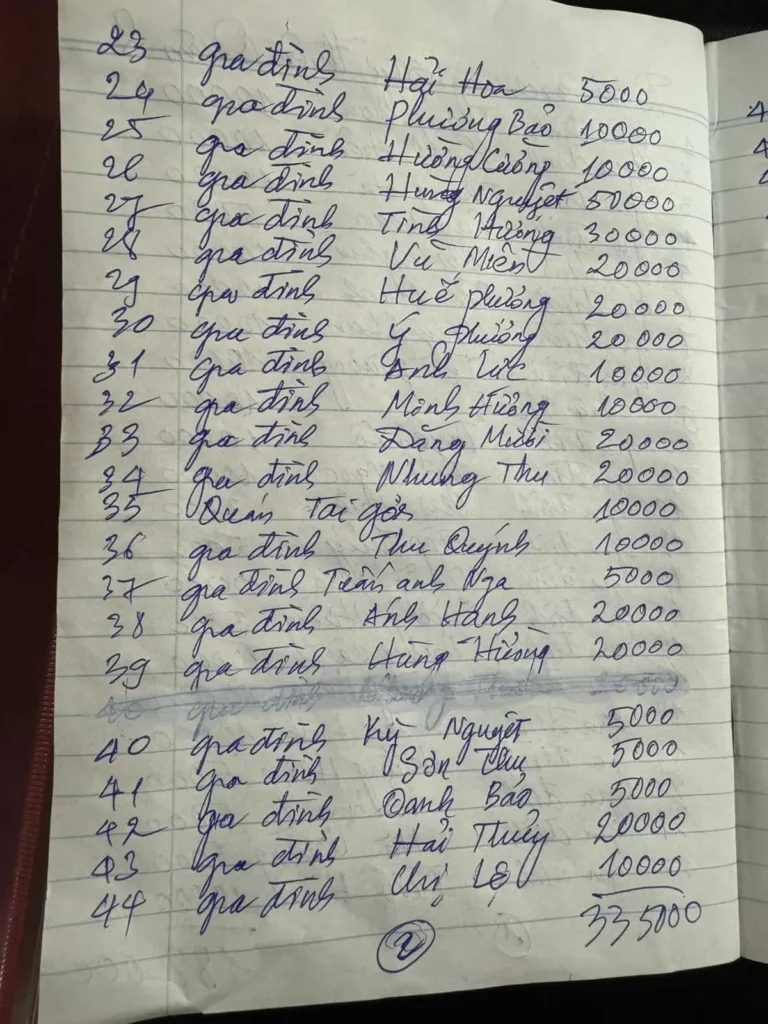 23 gia đình Hải Hoa 5000
24 gia đình Phương Bảo 10000
25 gia đình Hường Cường 10000
26 gia đình Hùng Nguyệt 50000
27 gia đình Tình Hương 30000
28 gia đình Vũ Miên 20000
29 gia đình Huế phương 20000
30 gia đình Ý phương 20000
31 gia đình Anh Lực 10000
32 gia đình Minh Hương 10000
33 gia đình Đăng Mười 20000
34 gia đình Nhung Thu 20000
35 Quán Tai gòn 10000
36 gia đình Thu Quỳnh 10000
37 gia đình anh Nga 5000
38 gia đình Ánh Hạnh 20000
39 gia đình Hùng Hường 20000
40 gia đình 20000
40 gia đình Kỳ Nguyệt 5000
41 gia đình Sơn Thu 5000
42 gia đình Oanh Bảo 5000
43 gia đình Hải Thủy 20000
44 gia đình Chị Lệ 10000
335000
2